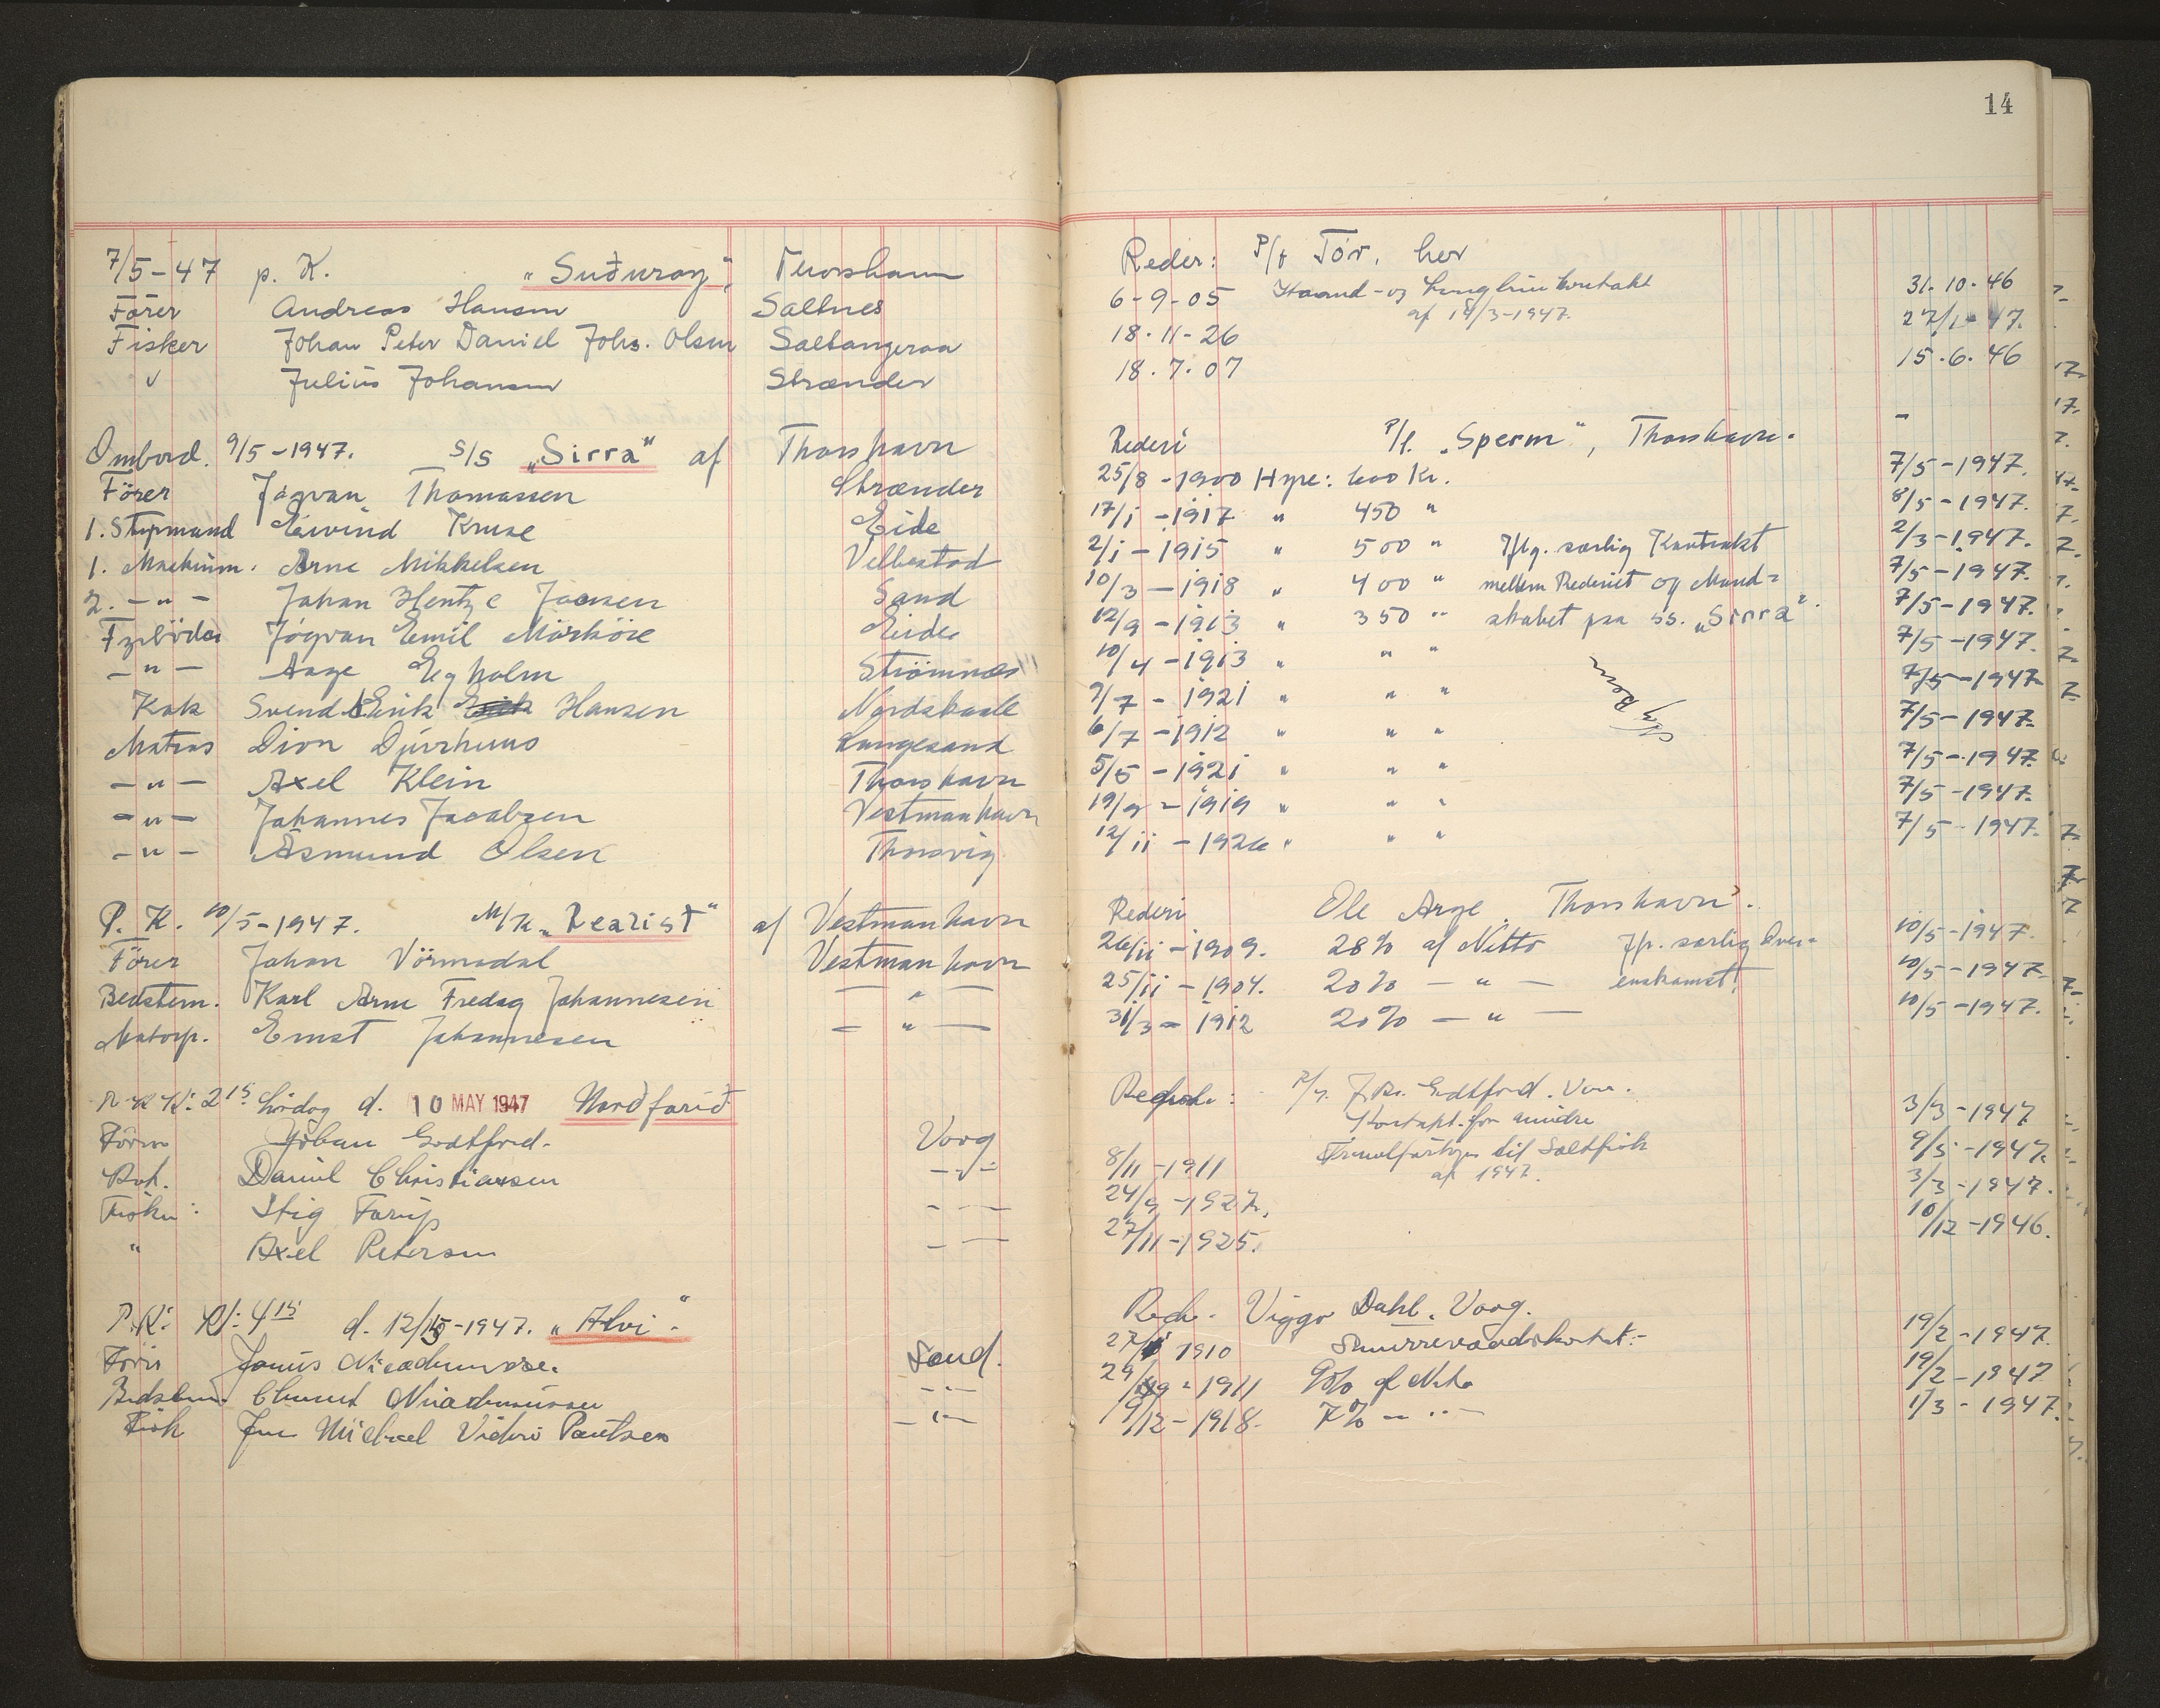 14
7/5-47 p. K. "Suðuroy", Thorshavn Reder: P/f Tór, her
Förer Andreas Hansen Saltnes 6-9-05 Haand- og Langline 31.10.46
af 14/3-1947.
Fisker Johan Peter Daniel Johs. Olsen Saltangeraa 18.11-26 27/1-47.
" Julius Johansen Strænder 18.7.07 15.6.46
Ombord. 9/5-1947. S/S "Sirra" af Thorshavn Rederi P/f. "Sperm", Thorshavn. -
Förer Jógvan Thomassen Strænder 25/8-1900 Hyre: 600 Kr. 7/5-1947.
1. Styrmand Eivind Kruse Eide 17/1-1917 " 450 " 8/5-1947.
1. Maskinm. Arne Mikkelsen Velbestad 2/1-1915 " 500 " Iflg. særlig Kontrakt 2/3-1947.
2. -"- Johan Hentze Joensen Sand 10/3-1918 " 400 " mellem Rederiet og Mand= 7/5-1947.
Fyrböder Jógvan Emil Mörköre Eide 12/9-1913 " 350 " skabet paa ss. "Sirra". 7/5-1947.
-"- Aage Egholm Strömnæs 10/4-1913 " " " 7/5-1947.
Kok Svend Erik Hansen Nordskaale 9/7-1921 " " " 7/5-1947
Matros Dion Djurhuus Langesand 6/7-1912 " " " 7/5-1947.
-"- Axel Klein Thorshavn 5/5-1921 " " " 7/5-1947.
-"- Johannes Jacobsen Vestmanhavn 19/9-1919 " " " 7/5-1947.
-"- Asmund Olsen Thorsvig 12/11-1926 " " " 7/5-1947.
P. K. 10/5-1947. M/K "Realist" af Vestmanhavn Rederi Ole Arge Thorshavn.
Förer Johan Vörmadal Vestmanhavn 26/11-1909. 28% af Netto Ifl. særlig Over= 10/5-1947.
Bedstem. Karl Arne Fredag Johannesen -"- 25/11-1904. 20% -"- enskomst. 10/5-1947
Motorp. Ernst Johannesen -"- 31/3-1912 20% -"- 10/5-1947.
Kl. 2 15 Lördag d. 10 MAY 1947 Nordfarið
Godtfred. Vaag Kontrakt for mindre 3/3-1947
Daniel Christiansen -"- 8/11-1911 til Saltfisk 9/5-1947.
af 1947.
Fisker: Stig 24/9-1927. 3/3-1947.
" Axel Petersen 27/11-1925. 10/12-1946.
P.K. Kl: 4 15 d. 12/5-1947. "Alvi" Viggo Dahl. Vaag.
Janus Sand. 1910 19/2-1947.
-"- 1911 9% af 19/2-1947
Michael -"- /12-1918. 7% -"- 1/3-1947.